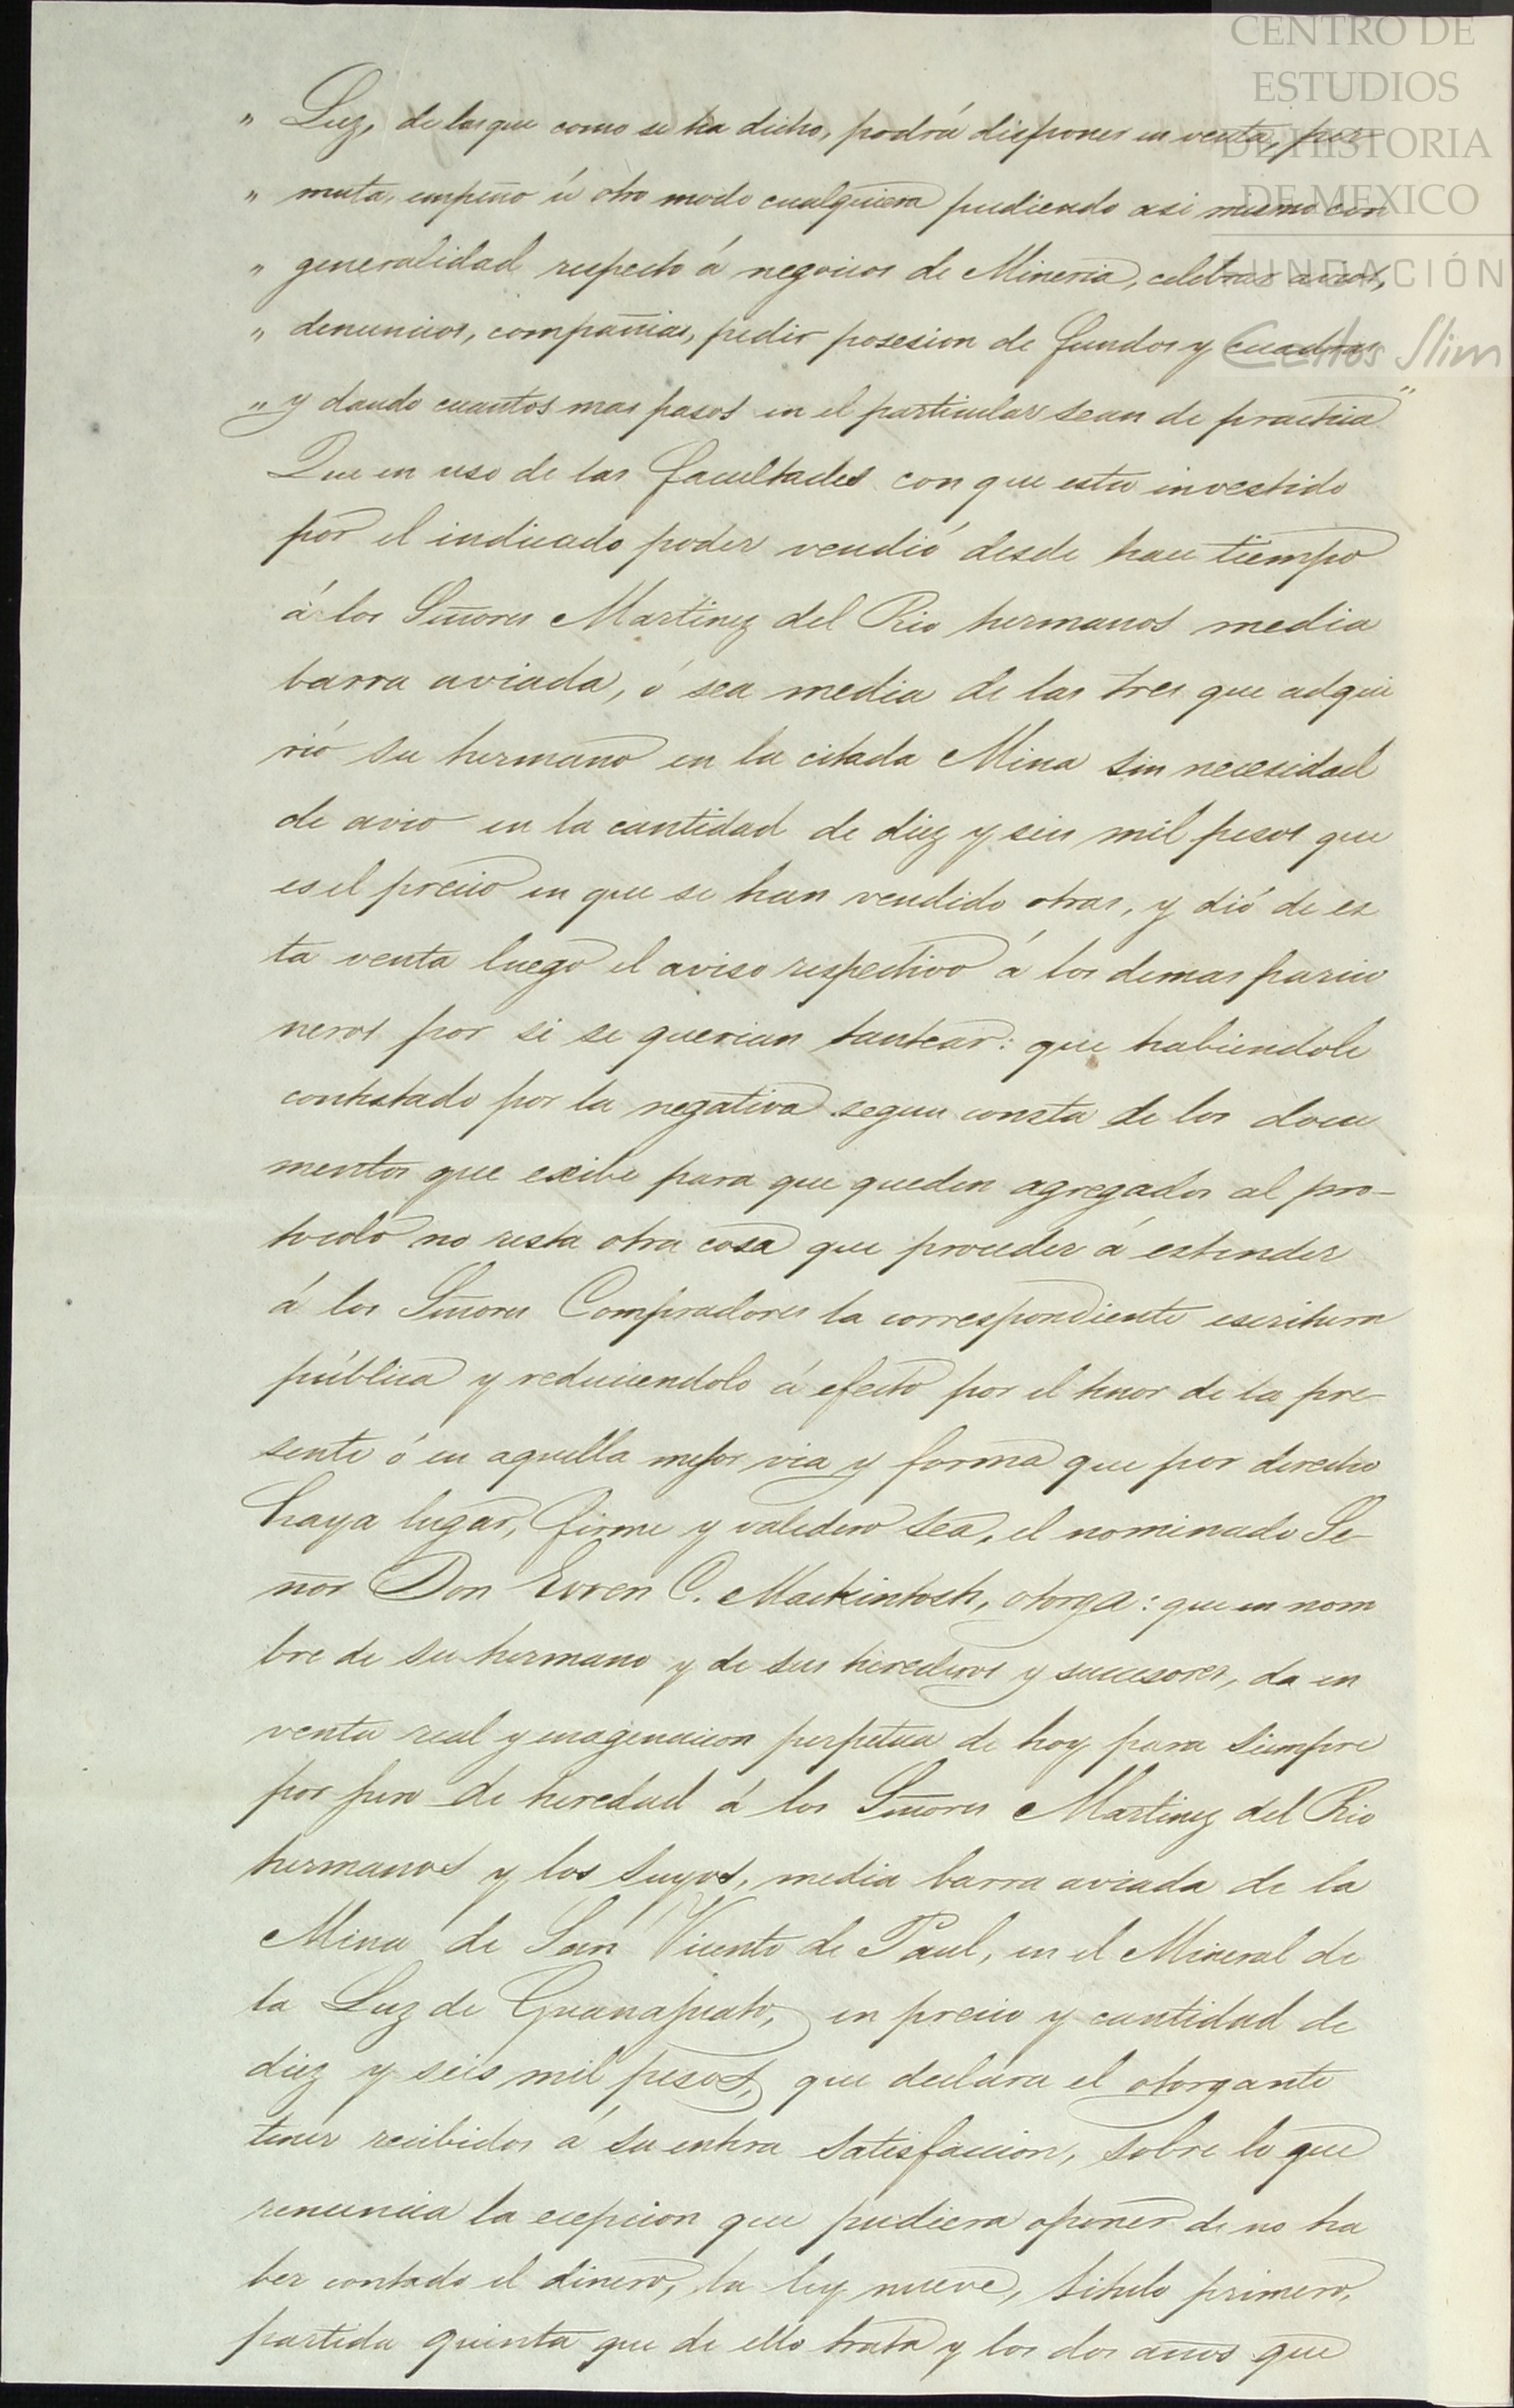 CENTRO DE
ESTUDIOS
DE HISTORIA
DE MEXICO
FUNDACIÓN
Carlos Slim
" Luz, de las que como se ha dicho, podrá disponer en venta, per-
" muta, empeño ú otro modo cualquiera pudiendo asi mismo con
" generalidad respecto á negocios de Mineria, celebrar avios,
" denuncios, compañias, pedir posesion de fundos y cuadras
" y dando cuantos mas pasos en el particular sean de practica"
Que en uso de las facultades con que esta investido
por el indicado poder vendió desde hace tiempo
á los Señores Martinez del Rio hermanos media
barra aviada, ó sea media de las tres que adqui
rió su hermano en la citada Mina sin necesidad
de avio en la cantidad de diez y seis mil pesos que
es el precio en que se han vendido otras, y dió de es
ta venta luego el aviso respectivo á los demas parcio
neros por si se querian tantear: que habiendole
contestado por la negativa segun consta de los docu
mentos que exibe para que queden agregados al pro-
tocolo no resta otra cosa que proceder á estender
á los Señores Compradores la correspondiente escritura
pública y reduciendolo á efecto por el tenor de la pre-
sente ó en aquella mejor via y forma que por derecho
haya lugar, firme y valedero sea, el nominado Se-
ñor Don Ewen C. Mackintosh, otorga: que en nom
bre de su hermano y de sus herederos y succesores, da en
venta real y enagenacion perpetua de hoy para siempre
por juro de heredad á los Señores Martinez del Rio
hermanos y los suyos, media barra aviada de la
Mina de San Vicente de Paul, en el Mineral de
la Luz de Guanajuato, en precio y cantidad de
diez y seis mil pesos, que declara el otorgante
tener recibidos á su entera satisfaccion, sobre lo que
renuncia la ecepcion que pudiera oponer de no ha
ber contado el dinero, la ley nueve, titulo primero,
partida quinta que de ello trata y los dos años que